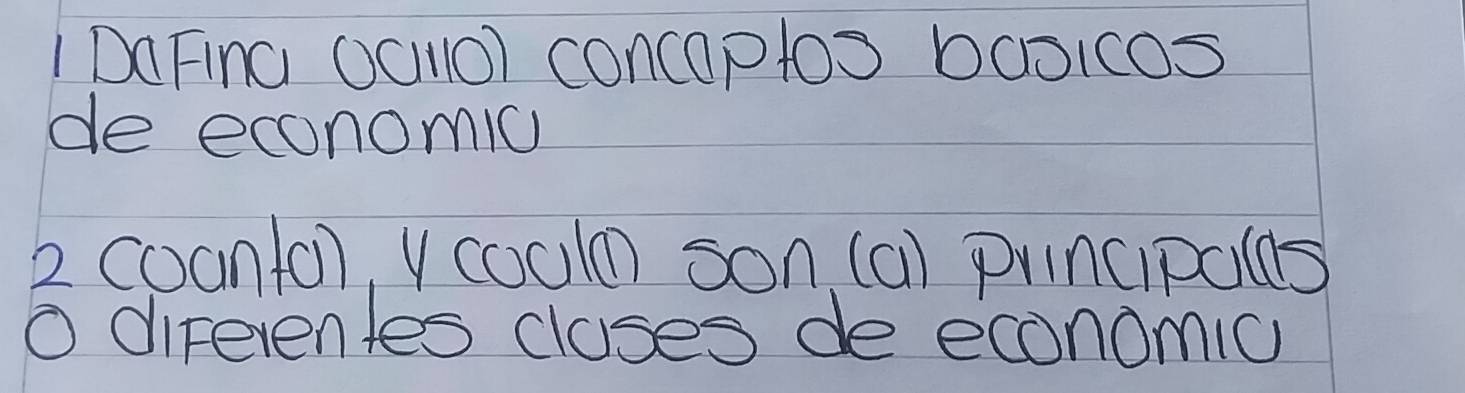 1 Defina ocho conceptos basicos
de economia
2 Coantas y coales son las principales
o diferentes clases de economia